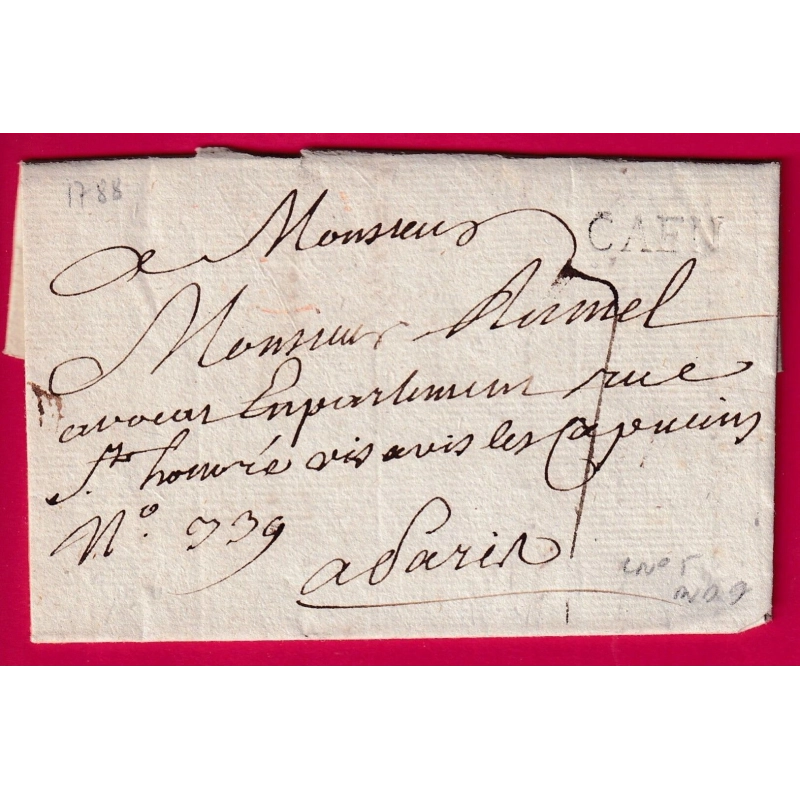 1788
CAEN
a Monsieur
Monsieur Rumel
avocat Enparlement rue
St honoré vis avis les Capucins
N° 339
7
a Paris